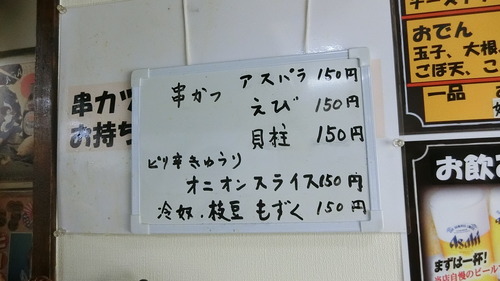 串かつ アスパラ 150円
えび 150円
貝柱 150円
ピリ辛きゅうり
オニオンスライス150円
冷奴.枝豆 もずく 150円
串カツ
お持ち
おでん
玉子、大根、
ごぼ天、こ
一品
お飲
Asahi
まずは一杯!
当店自慢のビール